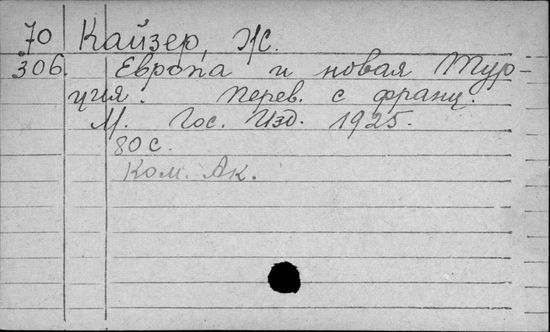 70 Кайзер, Ж.
306. Европа и новая Тур-
ция. Перев. с франц.
М. Гос. Изд. 1925.
80 с.
Ком. Ак.